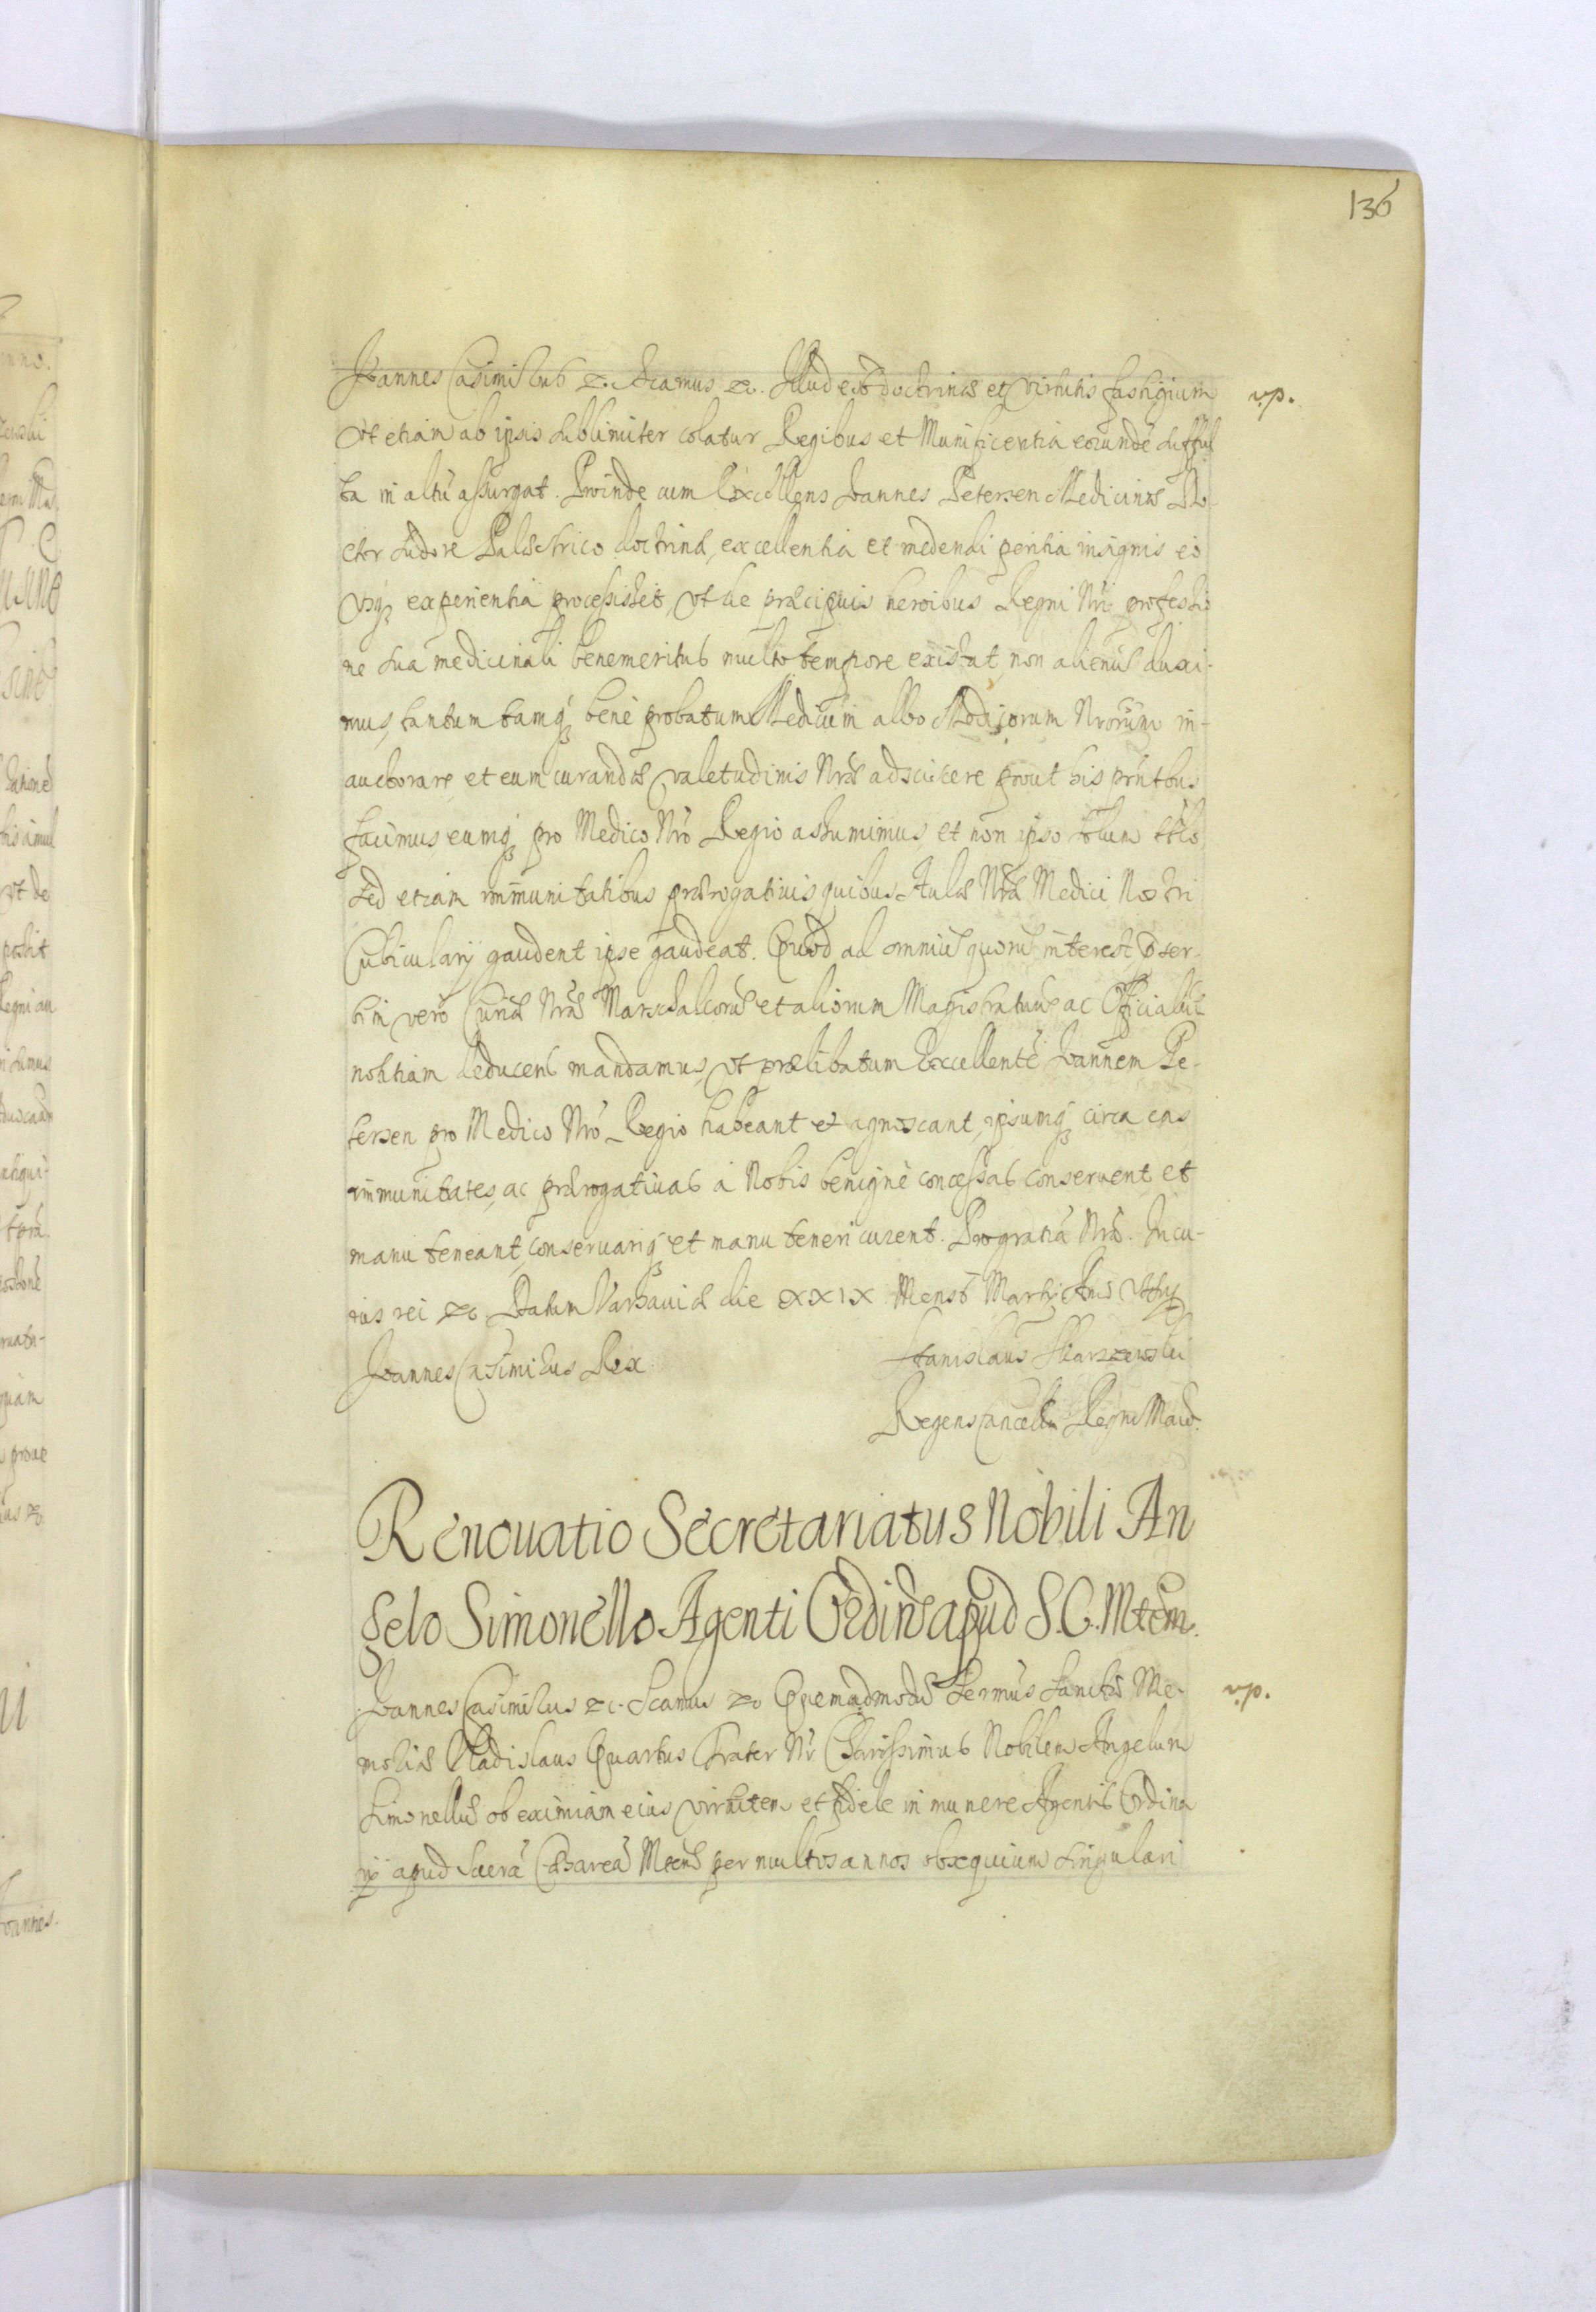 136
Joannes Casimirus etc. Scamus etc. Illud est doctrinæ et virtutis fastigium v.p.
Vt etiam ab ipsis sublimiter colatur Regibus et Munificentia eorundē sufful
ta in altū assurgat. Proinde cum Excellens Joannes Petersen Medicinæ Do
ctor sudore Palæstrico doctrinâ, excellentia et medendi peritia insignis eò
vsq; experientiâ processisset, vt de præcipuis heroibus Regni Nri professio
ne sua medicinali benemeritus multo tempore existat, non alienū duxi-
mus, tantum tamq; benè probatum Medicum albo Medicorum Nrorum in-
auctorare et eum curandæ valetudinis Nræ adsciscere prout his prntbus
facimus eumq; pro Medico Nro Regio assumimus, et non ipso solum ttlo
sed etiam immunitatibus prærogatiuis quibus Aulæ Nræ Medici Nostri
Cubicularij gaudent ipse gaudeat. Quod ad omniū quorū interest, præser-
tim verò Curiæ Nræ Marschalcorū et aliorum Magistratuū ac Officialiū
notitiam deducens mandamus, vt prælibatum Excellentē Joannem Pe-
tersen pro Medico Nro Regio habeant et agnoscant, ipsumq; circa eas
immunitates, ac prærogatiuas à Nobis benignè concessas conseruent et
manu teneant, conseruariq; et manu teneri curent. Pro gratiâ Nrâ. In cu-
ius rei etc. Datum Varsauiæ die XXIX Mensis Martij Ano Vtsu
Joannes Casimirus Rex Stanislaus Skarszewski
Regens Cancell. Regni
Renouatio Secretariatus Nobili An
gelo Simonello Agenti Ordin apud S.C. Mtem.
Joannes Casimirus etc. Scamus etc. Quemadmodū Sermus Sanctæ Me- v.p.
moriæ Vladislaus Quartus Frater Nr Charissimus Nobilem Angelum
Simonellū ob eximiam eius virtutem et fidele in munere Agentis Ordina
rij apud Sacrā Cæsareā Mtem per multos annos obsequium singulari